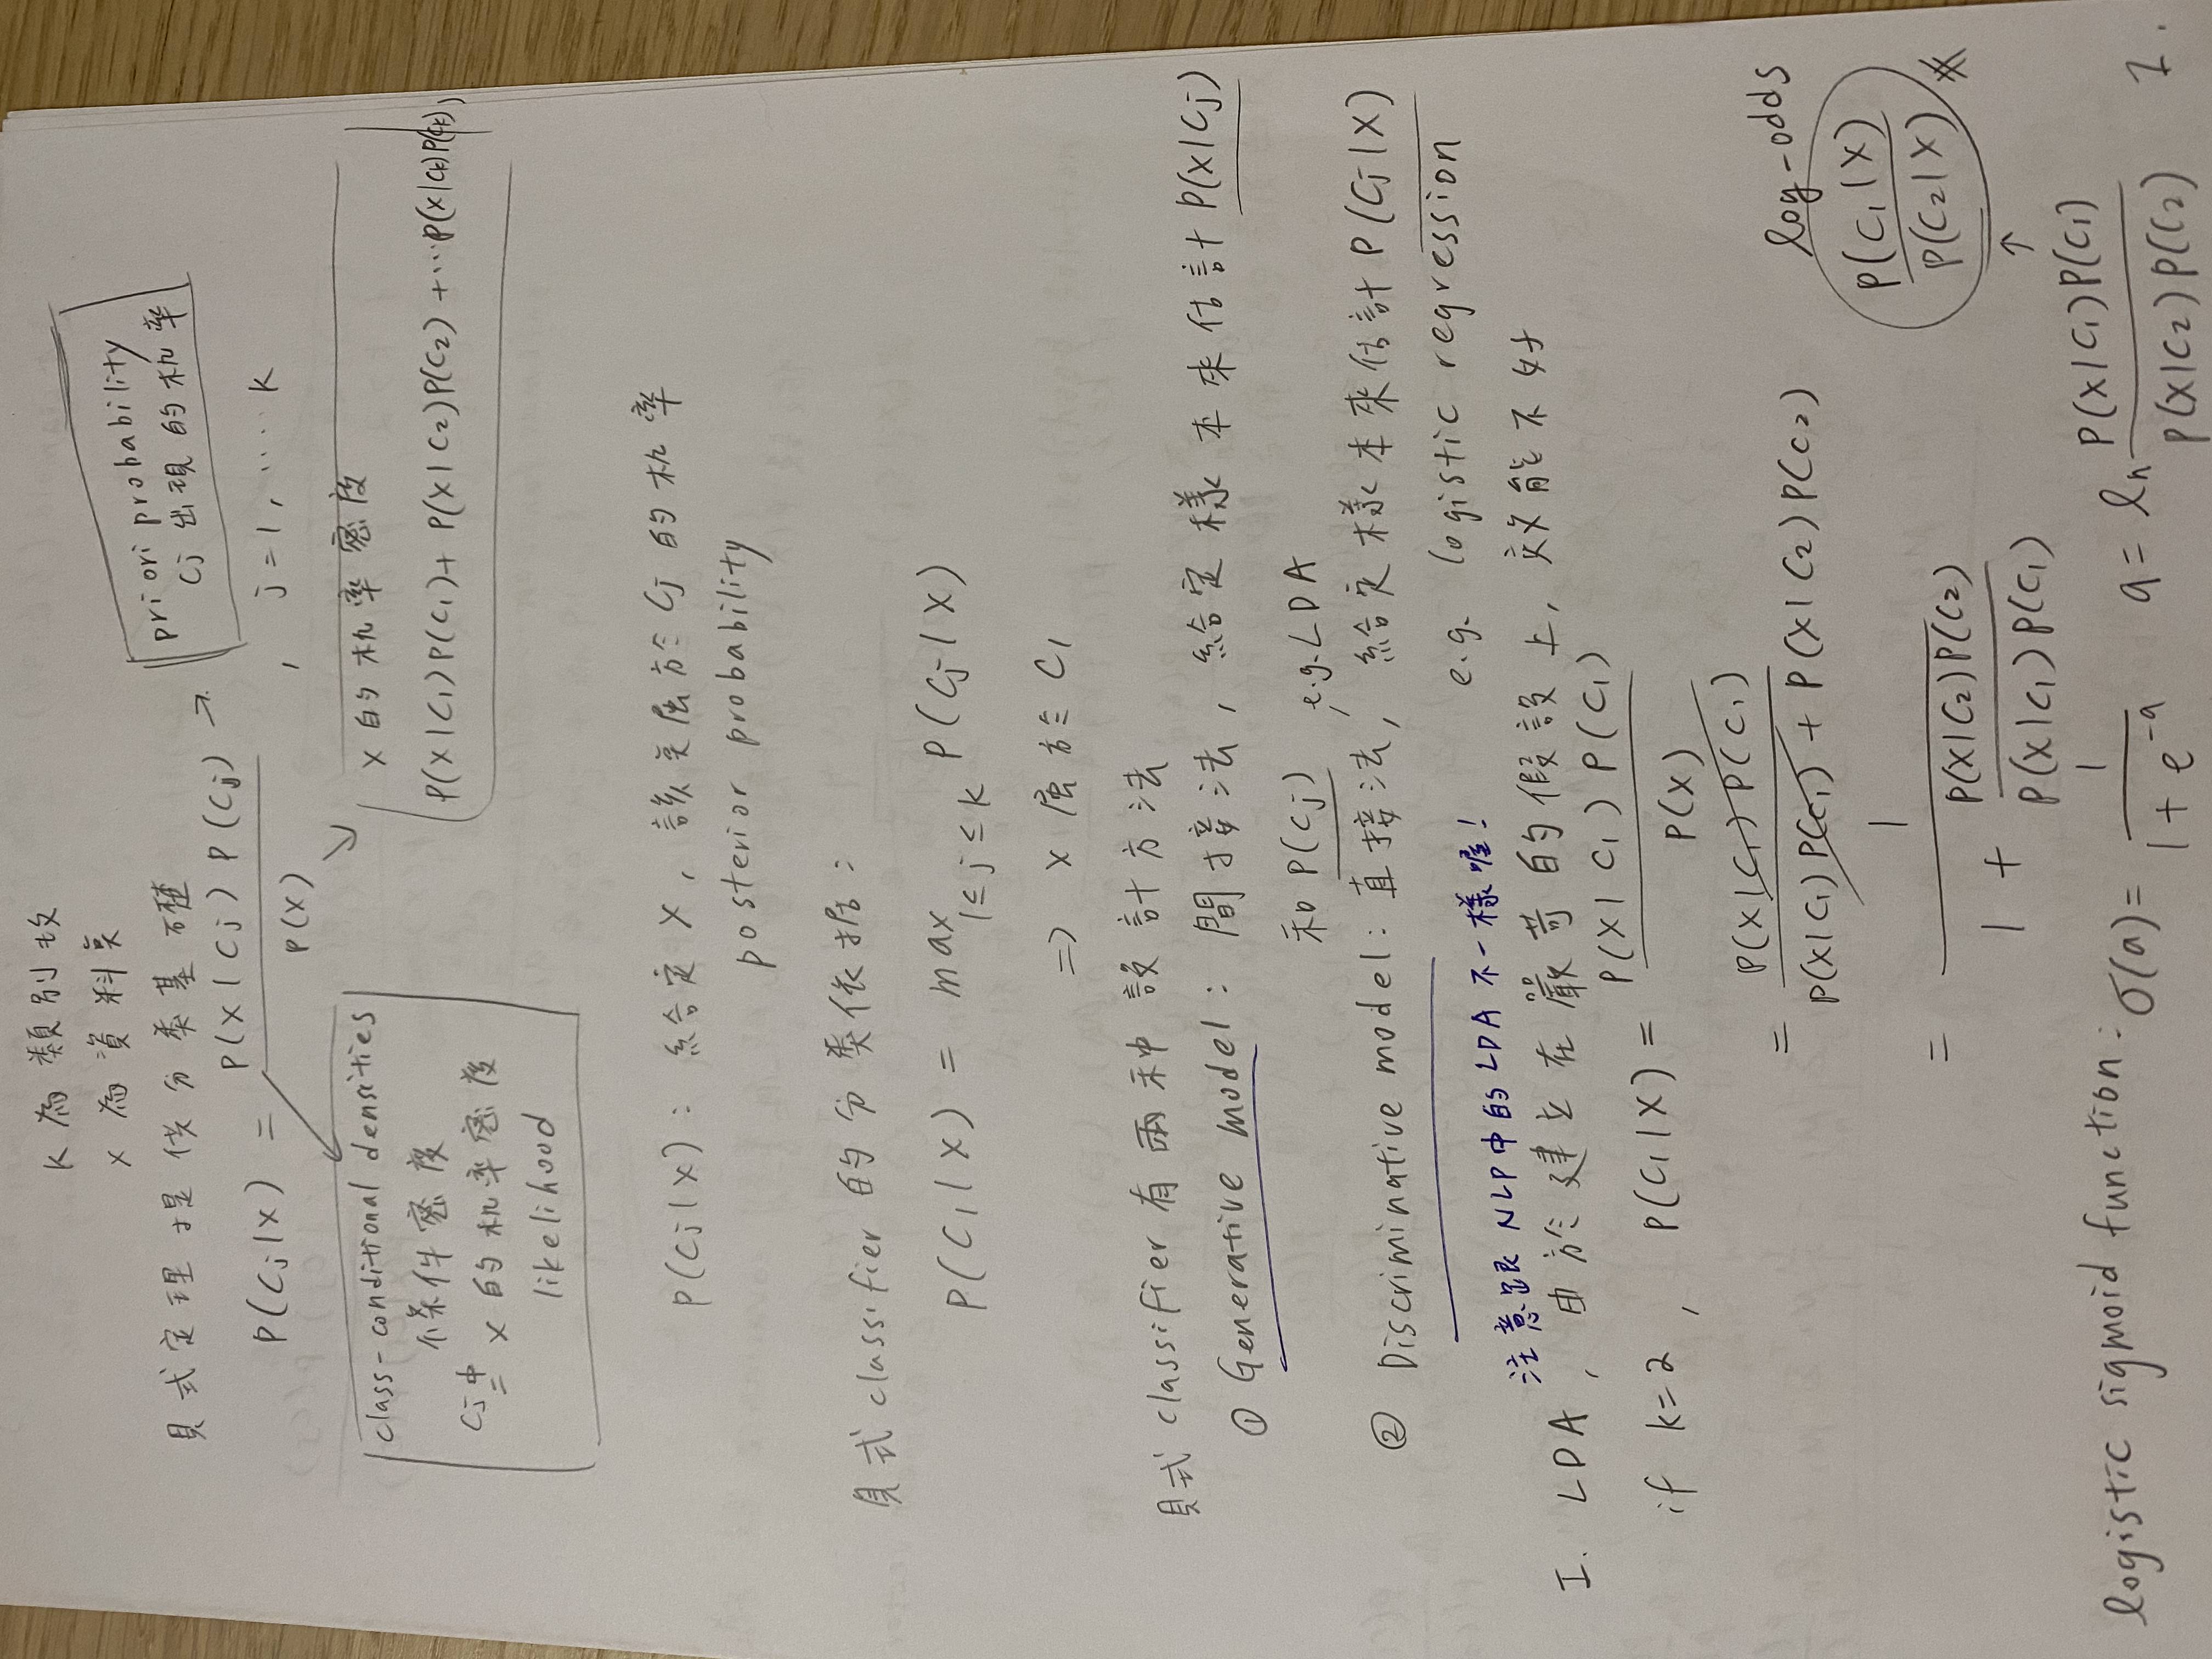 K 為類別数
x 為資料点
貝式定理提供分类基礎
P(Cj|x) = P(x|Cj) P(Cj) / P(x) , j=1, ..... K
priori probability
Cj 出現的机率
class-conditional densities
條件密度
Cj中 x 的机率密度
likelihood
x 的机率密度
P(x|C1)P(C1)+ P(x|C2)P(C2) +...P(x|Ck)P(Ck)
P(Cj|x): 給定 x, 該点屬於 Cj 的机率
posterior probability
貝式 classifier 的分类依据:
P(C1|x) = max 1≤j≤k P(Cj|x)
=> x 屬於 C1
貝式 classifier 有兩种設計方法
① Generative model: 間接法, 給定樣本來估計 P(x|Cj)
和 P(Cj), e.g. LDA
② Discriminative model: 直接法, 給定樣本來估計 P(Cj|x)
e.g. logistic regression
注意跟 NLP中的 LDA 不一樣喔!
I. LDA, 由於建立在嚴苛的假設上, 效能不好
if k=2, P(C1|x) = P(x|C1) P(C1) / P(x)
= P(x|C1) P(C1) / P(x|C1) P(C1) + P(x|C2)P(C2)
= 1 / 1 + P(x|C2)P(C2) / P(x|C1)P(C1)
log-odds
P(C1|x) / P(C2|x)
↑
logistic sigmoid function: σ(a) = 1 / 1+e^-a a = ln P(x|C1)P(C1) / P(x|C2)P(C2) 1.